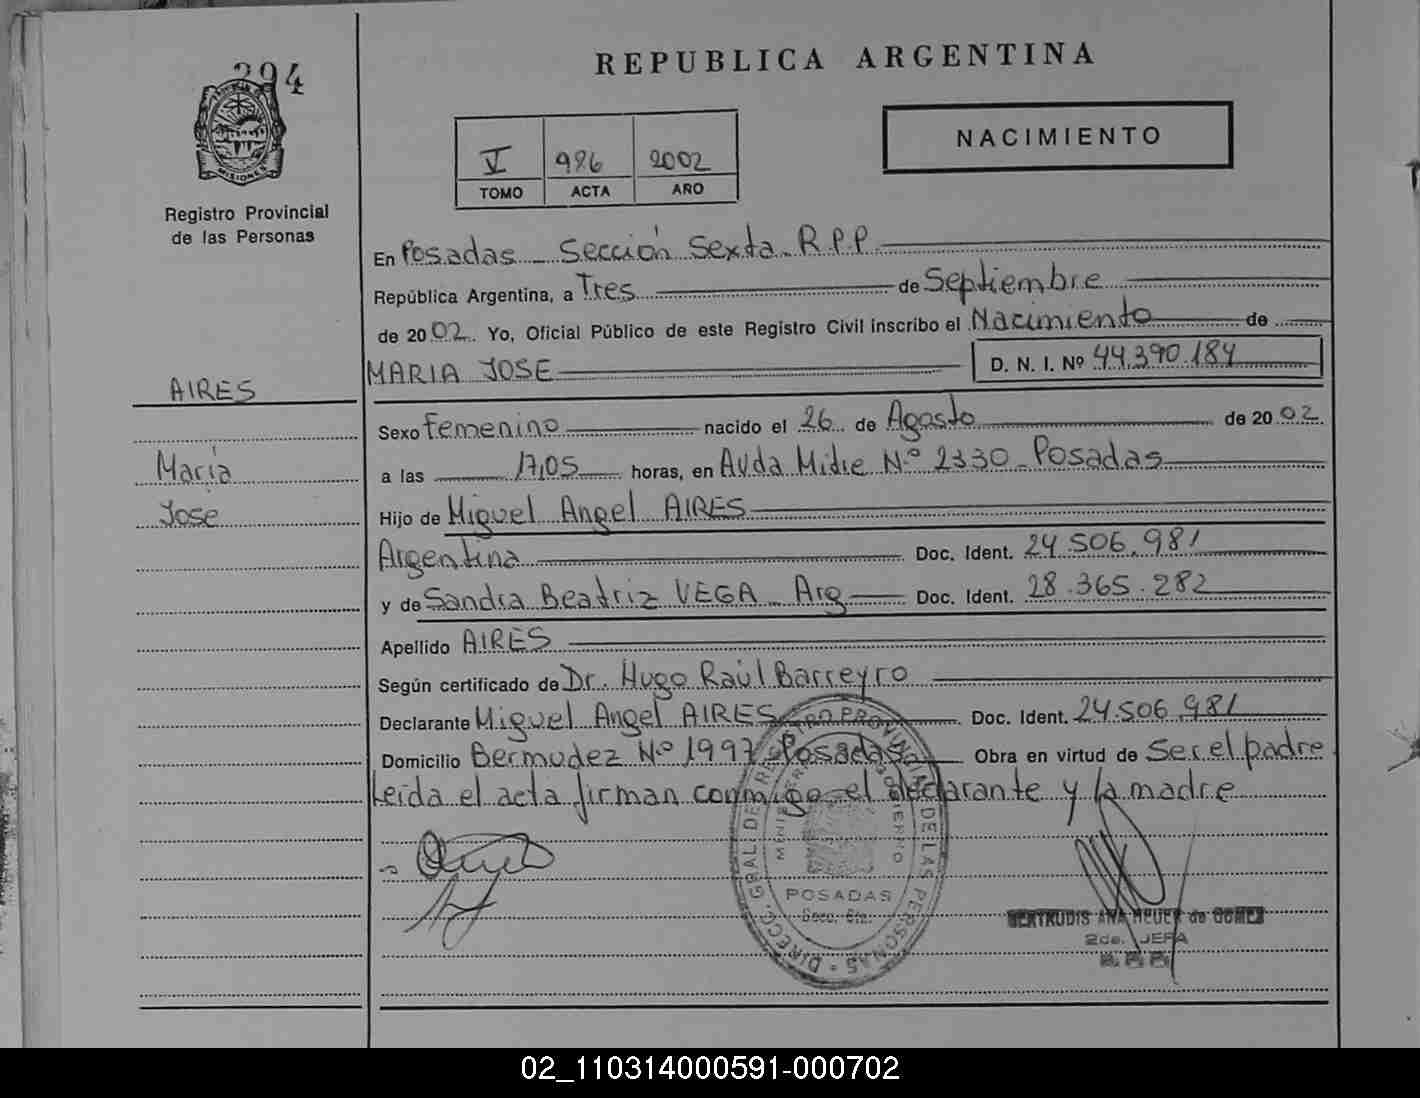 294
MISIONES
Registro Provincial
de las Personas
REPUBLICA ARGENTINA
NACIMIENTO
V 986 2002
TOMO ACTA AÑO
En Posadas - Sección Sexta - R.P.P.
República Argentina, a Tres de Septiembre
de 2002 Yo, Oficial Público de este Registro Civil inscribo el Nacimiento de
MARIA JOSE D. N. I. Nº 44.390.184
AIRES
Sexo Femenino nacido el 26 de Agosto de 2002
María
a las 17,05 horas, en Avda Mitre Nº 2330 - Posadas
José
Hijo de Miguel Angel AIRES
Argentina Doc. Ident. 24.506.981
y de Sandra Beatriz VEGA - Arg Doc. Ident. 28.365.282
Apellido AIRES
Según certificado de Dr. Hugo Raúl Barreyro
Declarante Miguel Angel AIRES Doc. Ident. 24.506.981
Domicilio Bermudez Nº 1997 - Posadas Obra en virtud de Ser el padre
Leída el acta firman conmigo el declarante y la madre
DIRECC. GRAL. DE REGISTRO PROVINCIAL DE LAS PERSONAS
POSADAS
Secc. 6ta.
GERTRUDIS ANA de GOMEZ
2da. JEFA
02_110314000591-000702